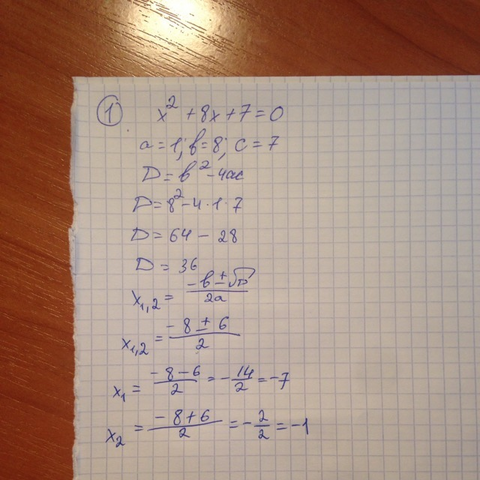 ① x² + 8x + 7 = 0
a = 1; b = 8; c = 7
D = b² - 4ac
D = 8² - 4 · 1 · 7
D = 64 - 28
D = 36
x₁,₂ = (-b ± √D) / 2a
x₁,₂ = (-8 ± 6) / 2
x₁ = (-8 - 6) / 2 = -14/2 = -7
x₂ = (-8 + 6) / 2 = -2/2 = -1